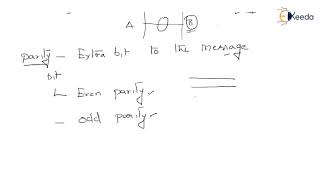 A B
Ekeeda
parity — Extra bit to the message
bit
Even parity
— odd parity